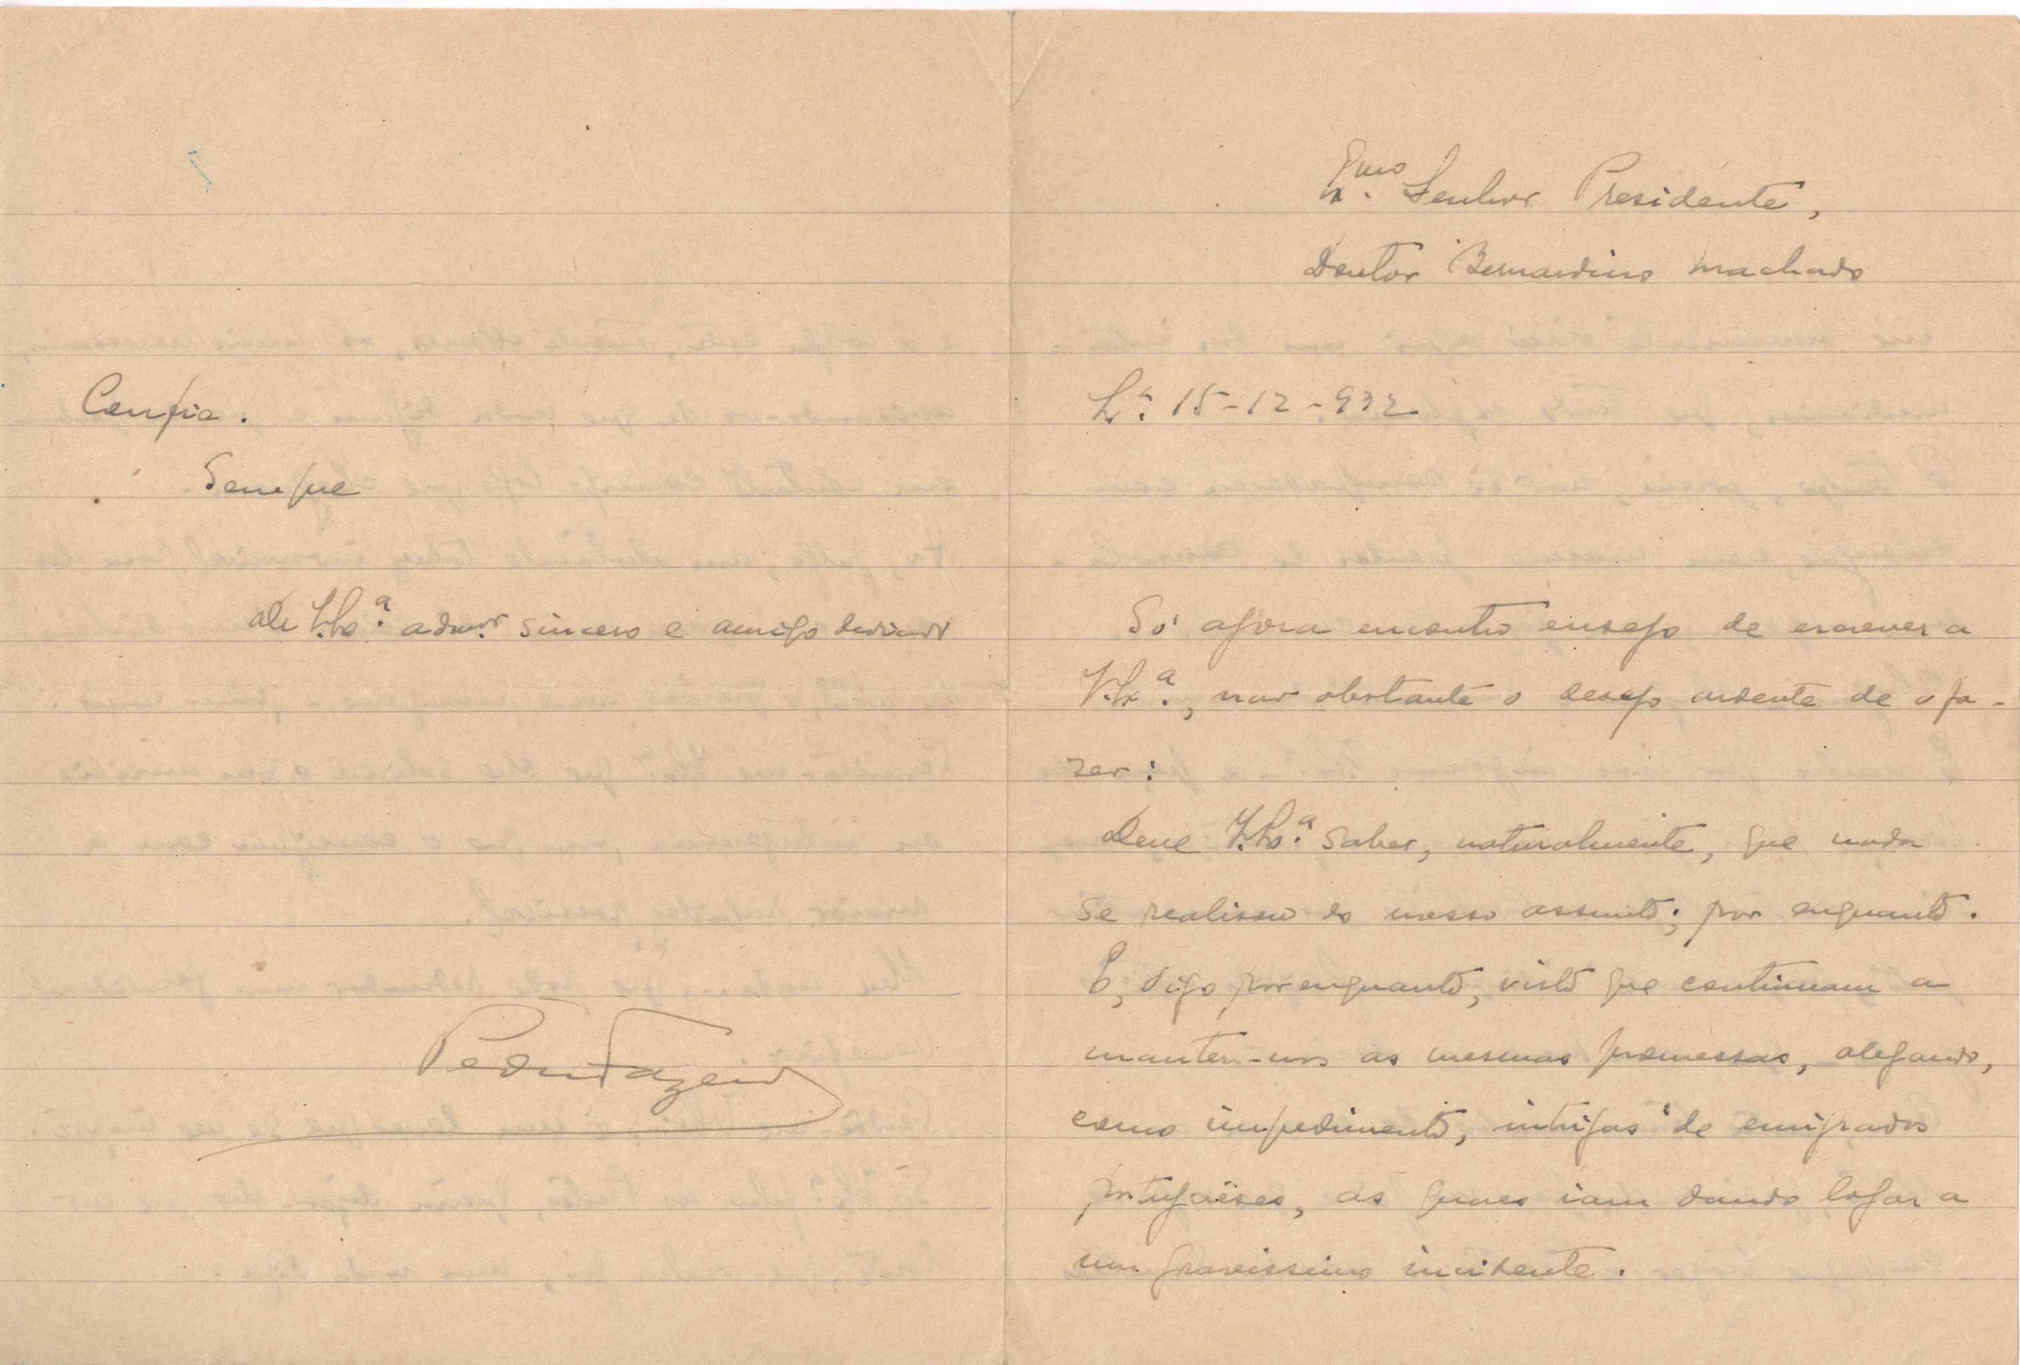 Exmo Senhor Presidente,
Doutor Bernardino Machado
Lx.ª 15-12-932
Só agora encontro ensejo de escrever a
V. Ex.ª, não obstante o desejo ardente de o fa-
zer:
Deve V. Ex.ª saber, naturalmente, que nada
se realisou do nosso assunto; por enquanto.
E, digo, por enquanto, visto que continuam a
manter-nos as mesmas promessas, alegando,
como impedimento, intrigas de emigrados
portuguêses, as quaes iam dando logar a
um gravissimo incidente.
Confia.
Sempre
De V. Ex.ª admor. sincero e amigo dedicado
Pedro Fazenda